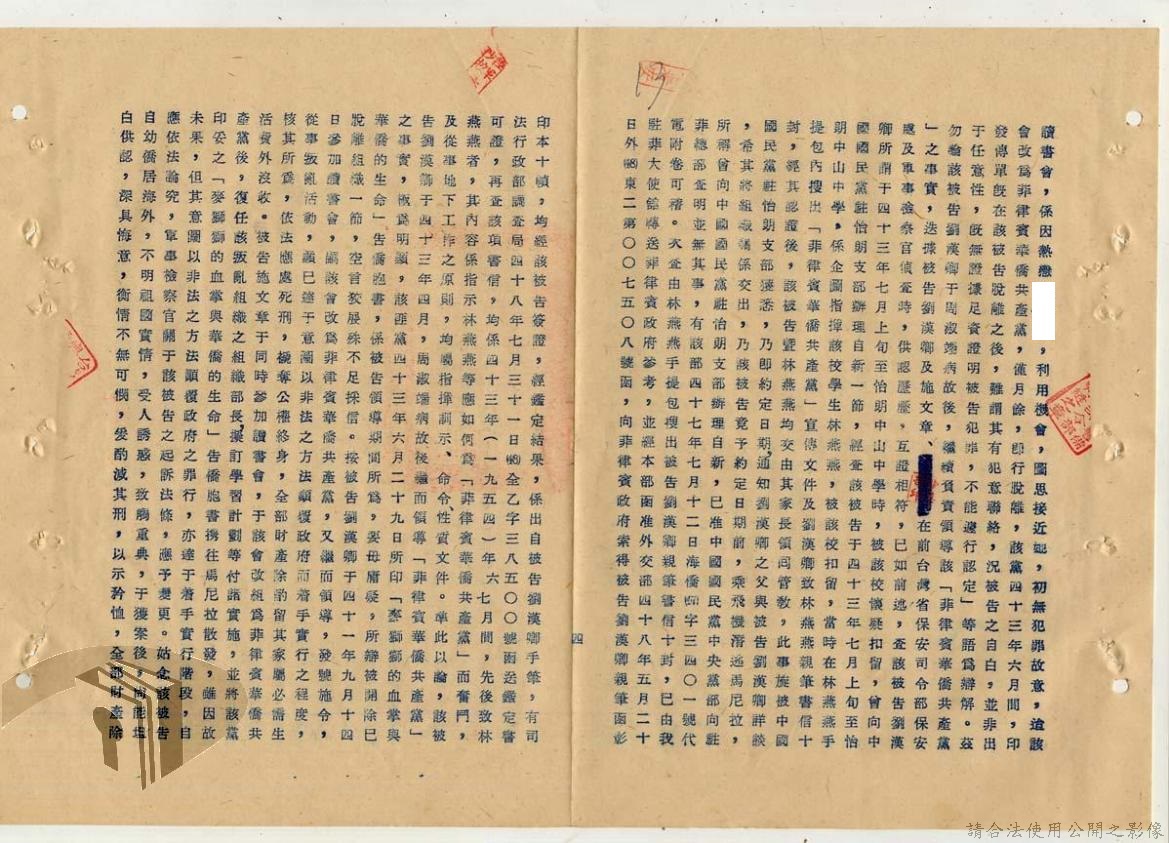 讀書會，係因熱戀，利用機會，圖思接近她，初無犯罪故意，迨該
會改為菲律賓華僑共產黨，僅月餘，即行脫離，該黨四十三年六月間，印
發傳單旣在該被告脫離之後，難謂其有犯意聯絡，況被告之自白，並非出
于任意性，旣無證據足資證明被告犯罪，不能遽行認定」等語為辯解。茲
勿論該被告劉漢卿于周淑端病故後，繼續負責領導該「菲律賓華僑共產黨
」之事實，迭據被告劉漢卿及施文章、在前台灣省保安司令部保安
處及軍事檢察官偵查時，供認歷歷，互證相符，已如前述，查該被告劉漢
卿所謂于四十三年七月上旬至怡朗中山中學時，被該校懷疑扣留，曾向中
國國民黨駐怡朗支部辦理自新一節，經查該被告于四十三年七月上旬至怡
朗中山中學，係企圖指揮該校學生林燕燕，被該校扣留，當時在林燕燕手
提包內搜出「菲律賓華僑共產黨」宣傳文件及劉漢卿致林燕燕親筆書信十
封，經其認證後，該被告暨林燕燕均交由其家長領囘管教，此事旋被中國
國民黨駐怡朗支部獲悉，乃即約定日期，通知劉漢卿之父與被告劉漢卿詳談
，希其將組織關係交出，乃該被告竟予約定日期前，乘飛機潛逃馬尼拉，
所稱曾向中國國民黨駐怡朗支部辦理自新，已准中國國民黨中央黨部向駐
菲總部查明並無其事，有該部四十七年七月十二日海僑字三四〇一號代
電附卷可稽。次查由林燕燕手提包搜出被告劉漢卿親筆書信十封，已由我
駐菲大使館轉送菲律賓政府參考，並經本部函准外交部四十八年五月二十
日外東二第〇〇七五〇八號函，向菲律賓政府索得被告劉漢卿親筆函影
印本十幀，均經該被告簽證，經鑑定結果，係出自被告劉漢卿手筆，有司
法行政部調查局四十八年七月三十一日全乙字三八五〇〇號函送鑑定書
可證，再查該項書信，均係四十三年（一九五四）年六、七月間，先後致林
燕燕者，其內容係指示林燕燕等應如何為「菲律賓華僑共產黨」而奮鬥，
及從事地下工作之原則，均屬指揮訓示、命令、性質文件。準此以論，該被
告劉漢卿于四十三年四月，周淑端病故後繼而領導「菲律賓華僑共產黨」
之事實，極為明顯，該匪黨四十三年六月二十九日所印「麥獅獅的血掌與
華僑的生命」告僑胞書，係被告領導期間所為，要毋庸疑，所辯被開除已
脫離組織一節，空言狡展殊不足採信。按被告劉漢卿于四十一年九月十四
日參加讀書會，嗣該會改為菲律賓華僑共產黨，又繼而領導，發號施令，
從事叛亂活動，顯已達于意圖以非法之方法顛覆政府而着手實行之程度，
核其所為，依法應處死刑，褫奪公權終身，全部財產除酌留其家屬必需生
活費外沒收。被告施文章于同時參加讀書會，于該會改組為菲律賓華僑共
產黨後，復任該叛亂組織之組織部長，擬訂學習計劃等付諸實施，並將該黨
印妥之「麥獅獅的血掌與華僑的生命」告僑胞書携往馬尼拉散發，雖因故
未果，但其意圖以非法之方法顛覆政府之罪行，亦達于着手實行階段，自
應依法論究，軍事檢察官關于該被告之起訴法條，應予變更。姑念該被告
自幼僑居海外，不明祖國實情，受人誘惑，致觸重典，于獲案後，尚能坦
白供認，深具悔意，衡情不無可憫，爰酌減其刑，以示矜恤，全部財產除
四
請合法使用公開之影像